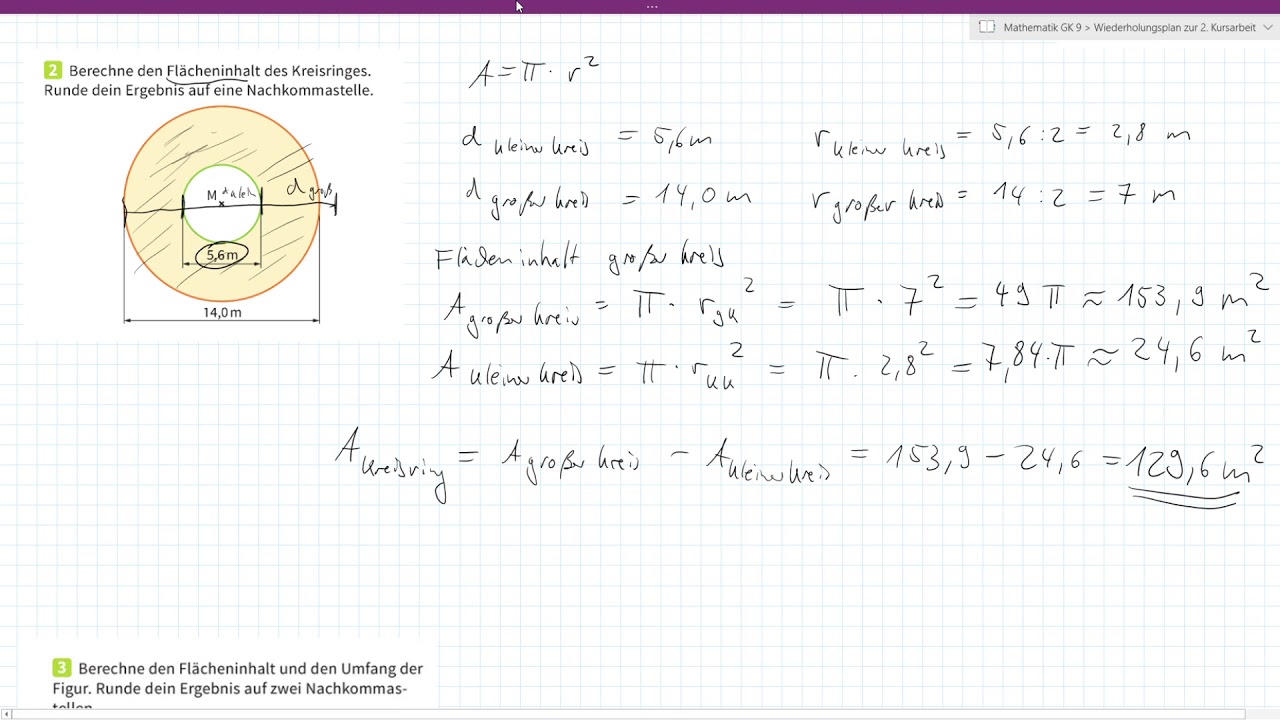 ...
Mathematik GK 9 > Wiederholungsplan zur 2. Kursarbeit
2 Berechne den Flächeninhalt des Kreisringes.
Runde dein Ergebnis auf eine Nachkommastelle.
M d klein
d groß
5,6 m
14,0 m
A = π · r²
d kleiner Kreis = 5,6 m
r kleiner Kreis = 5,6 : 2 = 2,8 m
d großer Kreis = 14,0 m
r großer Kreis = 14 : 2 = 7 m
Flächeninhalt großer Kreis
A großer Kreis = π · r gK ² = π · 7² = 49 π ≈ 153,9 m²
A kleiner Kreis = π · r kK ² = π · 2,8² = 7,84 · π ≈ 24,6 m²
A Kreisring = A großer Kreis − A kleiner Kreis = 153,9 − 24,6 = 129,6 m²
3 Berechne den Flächeninhalt und den Umfang der
Figur. Runde dein Ergebnis auf zwei Nachkommas-
tellen